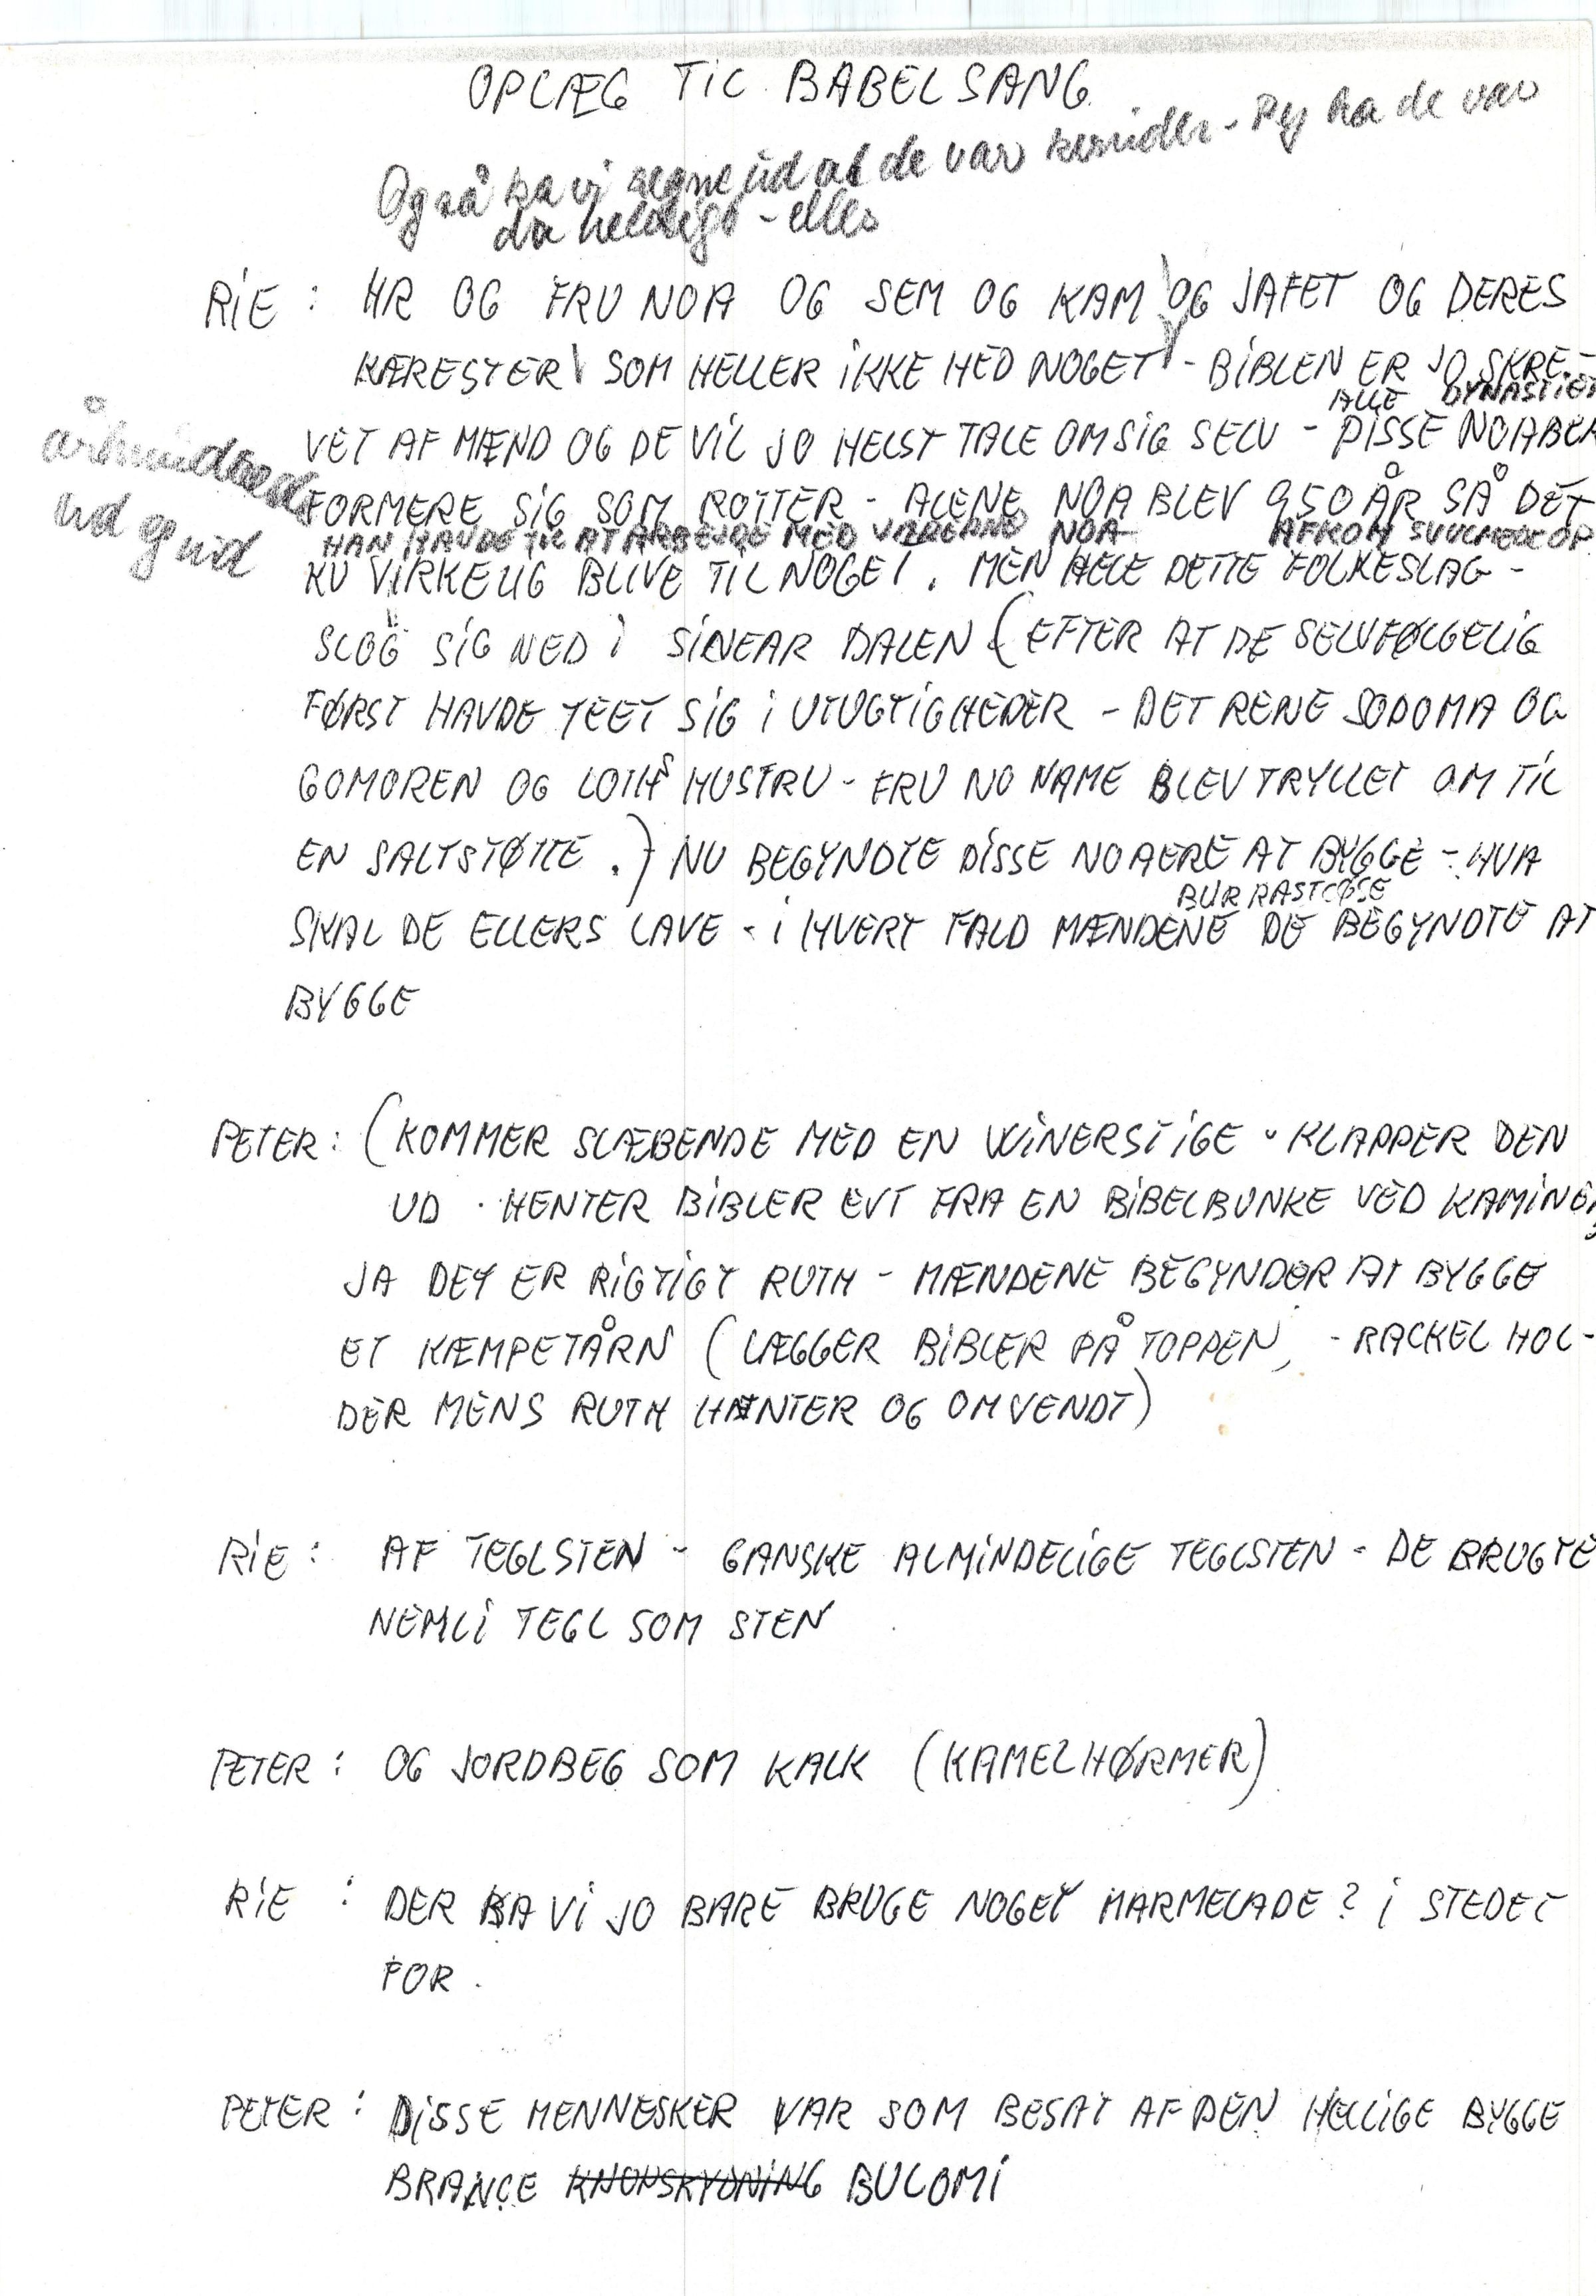 OPLÆG TIL BABELSANG
Og så ka vi regne ud at de var kvinder - Pyha de var
da heldigt - ellers
RIE : HR OG FRU NOA OG SEM OG KAM OG JAFET OG DERES
KÆRESTER SOM HELLER IKKE HED NOGET - BIBLEN ER JO SKRE-
ALLE DYNASTIET
VET AF MÆND OG DE VIL JO HELST TALE OM SIG SELV - DISSE NOABER
århundrede
ud og ind
FORMERE SIG SOM ROTTER - ALENE NOA BLEV 950 ÅR SÅ DET
HAN HAVDE TIL AT ARBEJDE MED NOA AFKOM SVULMEDE OP
KU VIRKELIG BLIVE TIL NOGET. MEN HELE DETTE FOLKESLAG -
SLOG SIG NED I SINEAR DALEN (EFTER AT DE SELVFØLGELIG
FØRST HAVDE TEET SIG I UTUGTIGHEDER - DET RENE SODOMA OG
GOMOREN OG LOTHS HUSTRU - FRU NO NAME BLEV TRYLLET OM TIL
EN SALTSTØTTE.) NU BEGYNDTE DISSE NOAERE AT BYGGE - HVA
BUR RASTLØSE
SKAL DE ELLERS LAVE - I HVERT FALD MÆNDENE DE BEGYNDTE AT
BYGGE
PETER : (KOMMER SLÆBENDE MED EN WINERSTIGE - KLAPPER DEN
UD . HENTER BIBLER EVT FRA EN BIBELBUNKE VED KAMINEN)
JA DET ER RIGTIGT RUTH - MÆNDENE BEGYNDER AT BYGGE
ET KÆMPETÅRN (LÆGGER BIBLER PÅ TOPPEN, - RACKEL HOL-
DER MENS RUTH HENTER OG OMVENDT)
RIE : AF TEGLSTEN - GANSKE ALMINDELIGE TEGLSTEN - DE BRUGTE
NEMLI TEGL SOM STEN
PETER : OG JORDBEG SOM KALK (KAMELHØRMER)
RIE : DER KA VI JO BARE BRUGE NOGET MARMELADE? I STEDET
FOR .
PETER : DISSE MENNESKER VAR SOM BESAT AF DEN HELLIGE BYGGE
BRANCE KNOPSKYDNING BULOMI